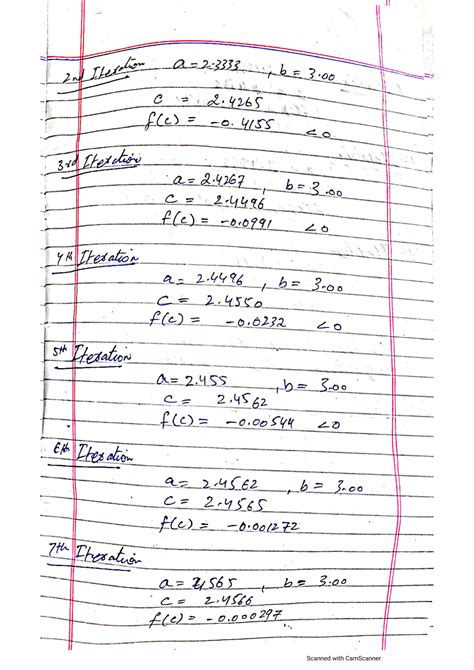 2nd Iteration a = 2.3333 , b = 3.00
c = 2.4265
f(c) = -0.4155 <0
3rd Iteration
a = 2.4267 , b = 3.00
c = 2.4496
f(c) = -0.0991 <0
4th Iteration
a = 2.4496 , b = 3.00
c = 2.4550
f(c) = -0.0232 <0
5th Iteration
a = 2.455 , b = 3.00
c = 2.4562
f(c) = -0.00544 <0
6th Iteration
a = 2.4562 , b = 3.00
c = 2.4565
f(c) = -0.001272
7th Iteration
a = 2.4565 , b = 3.00
c = 2.4566
f(c) = -0.000297
Scanned with CamScanner